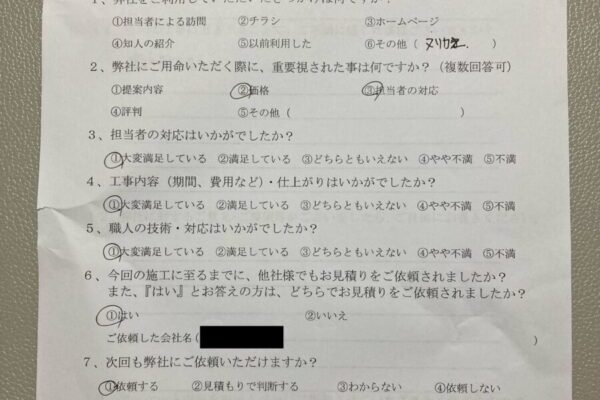 1、弊社をご利用していただいたきっかけは何ですか？
①担当者による訪問 ②チラシ ③ホームページ
④知人の紹介 ⑤以前利用した ⑥その他（ ヌリカエ. ）
2、弊社にご用命いただく際に、重要視された事は何ですか？（複数回答可）
①提案内容 ②価格 ③担当者の対応
④評判 ⑤その他（ ）
3、担当者の対応はいかがでしたか？
①大変満足している ②満足している ③どちらともいえない ④やや不満 ⑤不満
4、工事内容（期間、費用など）・仕上がりはいかがでしたか？
①大変満足している ②満足している ③どちらともいえない ④やや不満 ⑤不満
5、職人の技術・対応はいかがでしたか？
①大変満足している ②満足している ③どちらともいえない ④やや不満 ⑤不満
6、今回の施工に至るまでに、他社様でもお見積りをご依頼されましたか？
また、『はい』とお答えの方は、どちらでお見積りをご依頼されましたか？
①はい ②いいえ
ご依頼した会社名（ ）
7、次回も弊社にご依頼いただけますか？
①依頼する ②見積もりで判断する ③わからない ④依頼しない